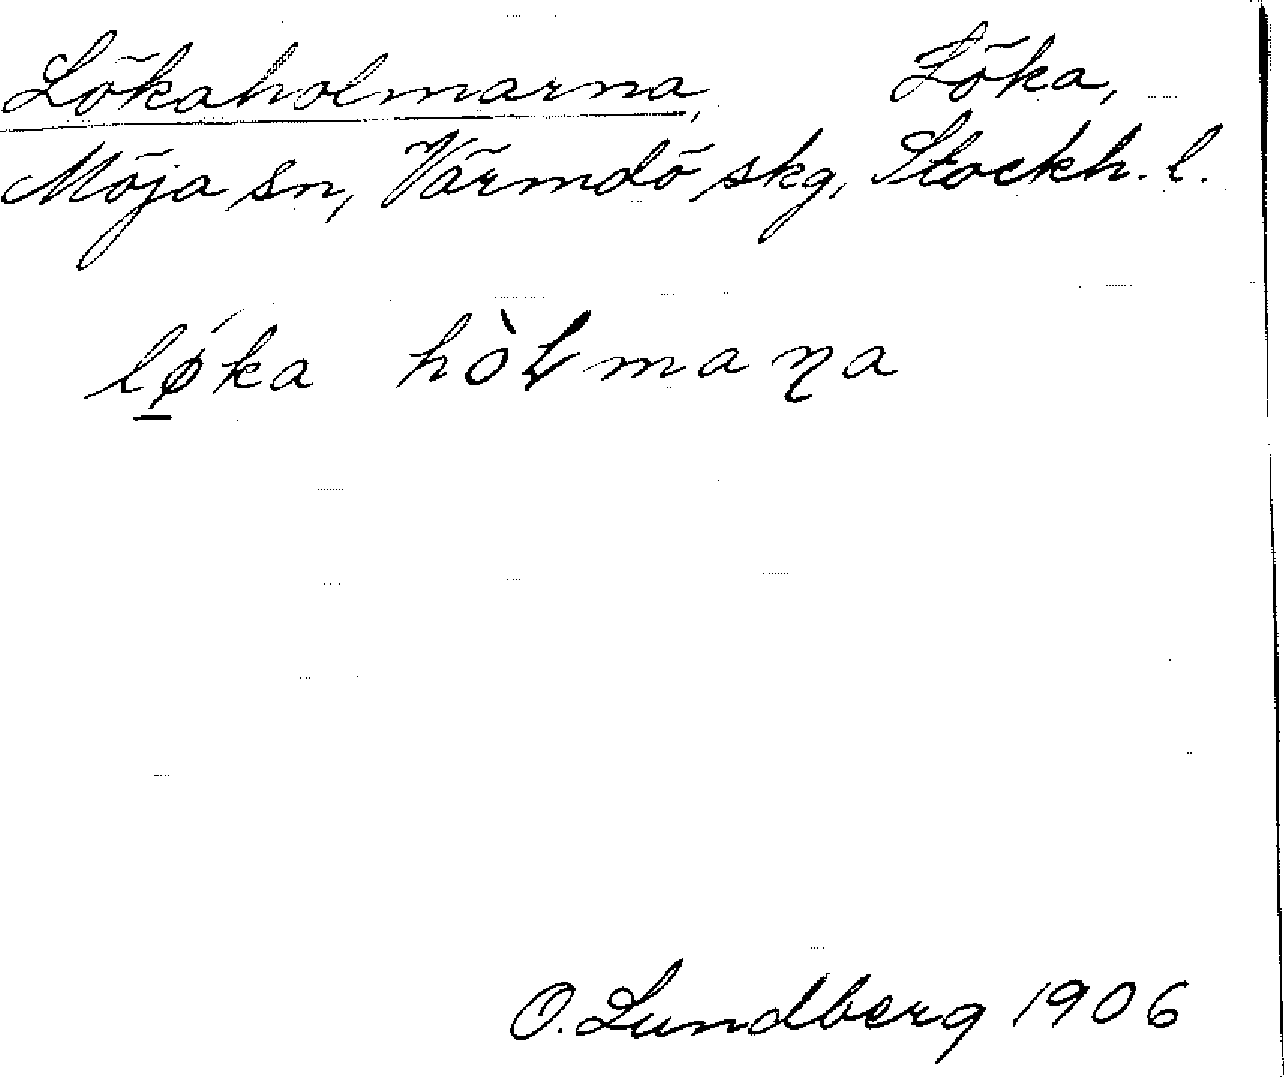 Lökaholmarna, Löka,
Möja sn, Värmdö skg, Stockh. l.
lǿ̱ka hòɫmaɳa
O. Lundberg 1906